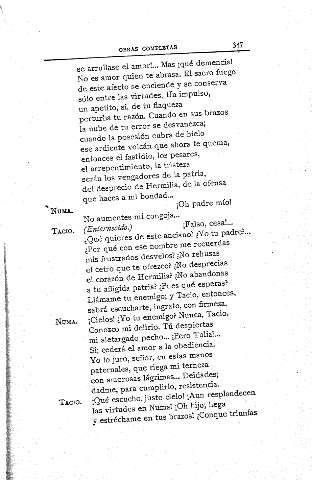 OBRAS COMPLETAS 317
se arrullase el amor!... Mas ¡qué demencia!
No es amor quien te abrasa. El sacro fuego
de este afecto se enciende y se conserva
sólo entre las virtudes. Un impulso,
un apetito, sí, de tu flaqueza
perturba tu razón. Cuando en sus brazos
la nube de tu error se desvanezca;
cuando la posesión cubra de hielo
ese ardiente volcán que ahora te quema,
entonces el fastidio, los pesares,
el arrepentimiento, la tristeza
serán los vengadores de la patria,
del desprecio de Hermilia, de la ofensa
que haces a mi bondad...
NUMA. ¡Oh padre mío!
No aumentes mi congoja...
TACIO. (Enternecido.) ¡Falso, cesa!...
¿Qué quieres de este anciano? ¿Yo tu padre?...
¿Por qué con ese nombre me recuerdas
mis frustrados desvelos? ¿No rehusas
el cetro que te ofrezco? ¿No desprecias
el corazón de Hermilia? ¿No abandonas
a tu afligida patria? ¿Pues qué esperas?
Llámame tu enemigo; y Tacio, entonces,
sabrá escucharte, ingrato, con firmeza.
NUMA. ¡Cielos! ¡Yo tu enemigo? Nunca, Tacio.
Conozco mi delirio. Tú despiertas
mi aletargado pecho... ¡Pero Talía!...
Sí; cederá el amor a la obediencia.
Yo lo juro, señor, en estas manos
paternales, que riega mi terneza
con amorosas lágrimas... Deidades;
dadme, para cumplirlo, resistencia.
TACIO. ¡Qué escucho, justo cielo! ¡Aun resplandecen
las virtudes en Numa! ¡Oh hijo; llega
y estréchame en tus brazos! ¡Conque triunfas